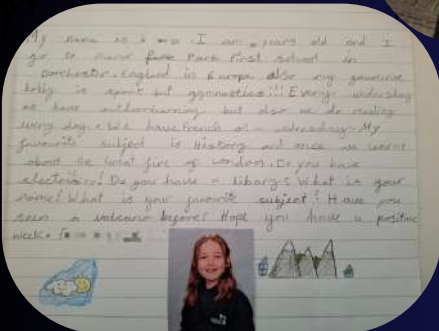 My name is I am years old and I
go to manor Park First school in
Dorchester, England in Europe also my favourite
hobby is sport but gymnastics!!! Every wednesday
we have outdoor learning but also we do reading
every day & we have french on a wednesday. My
favourite subject is History and once we learnt
about the Great fire of London. Do you have
electricity? Do you have a library? What is your
name? What is your favourite subject? Have you
seen a volcano before? Hope you have a positive
week.